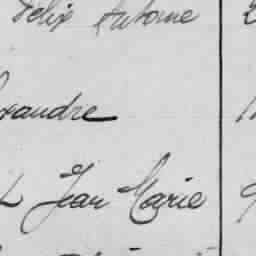 Félix Antoine
exandre
Jean Marie